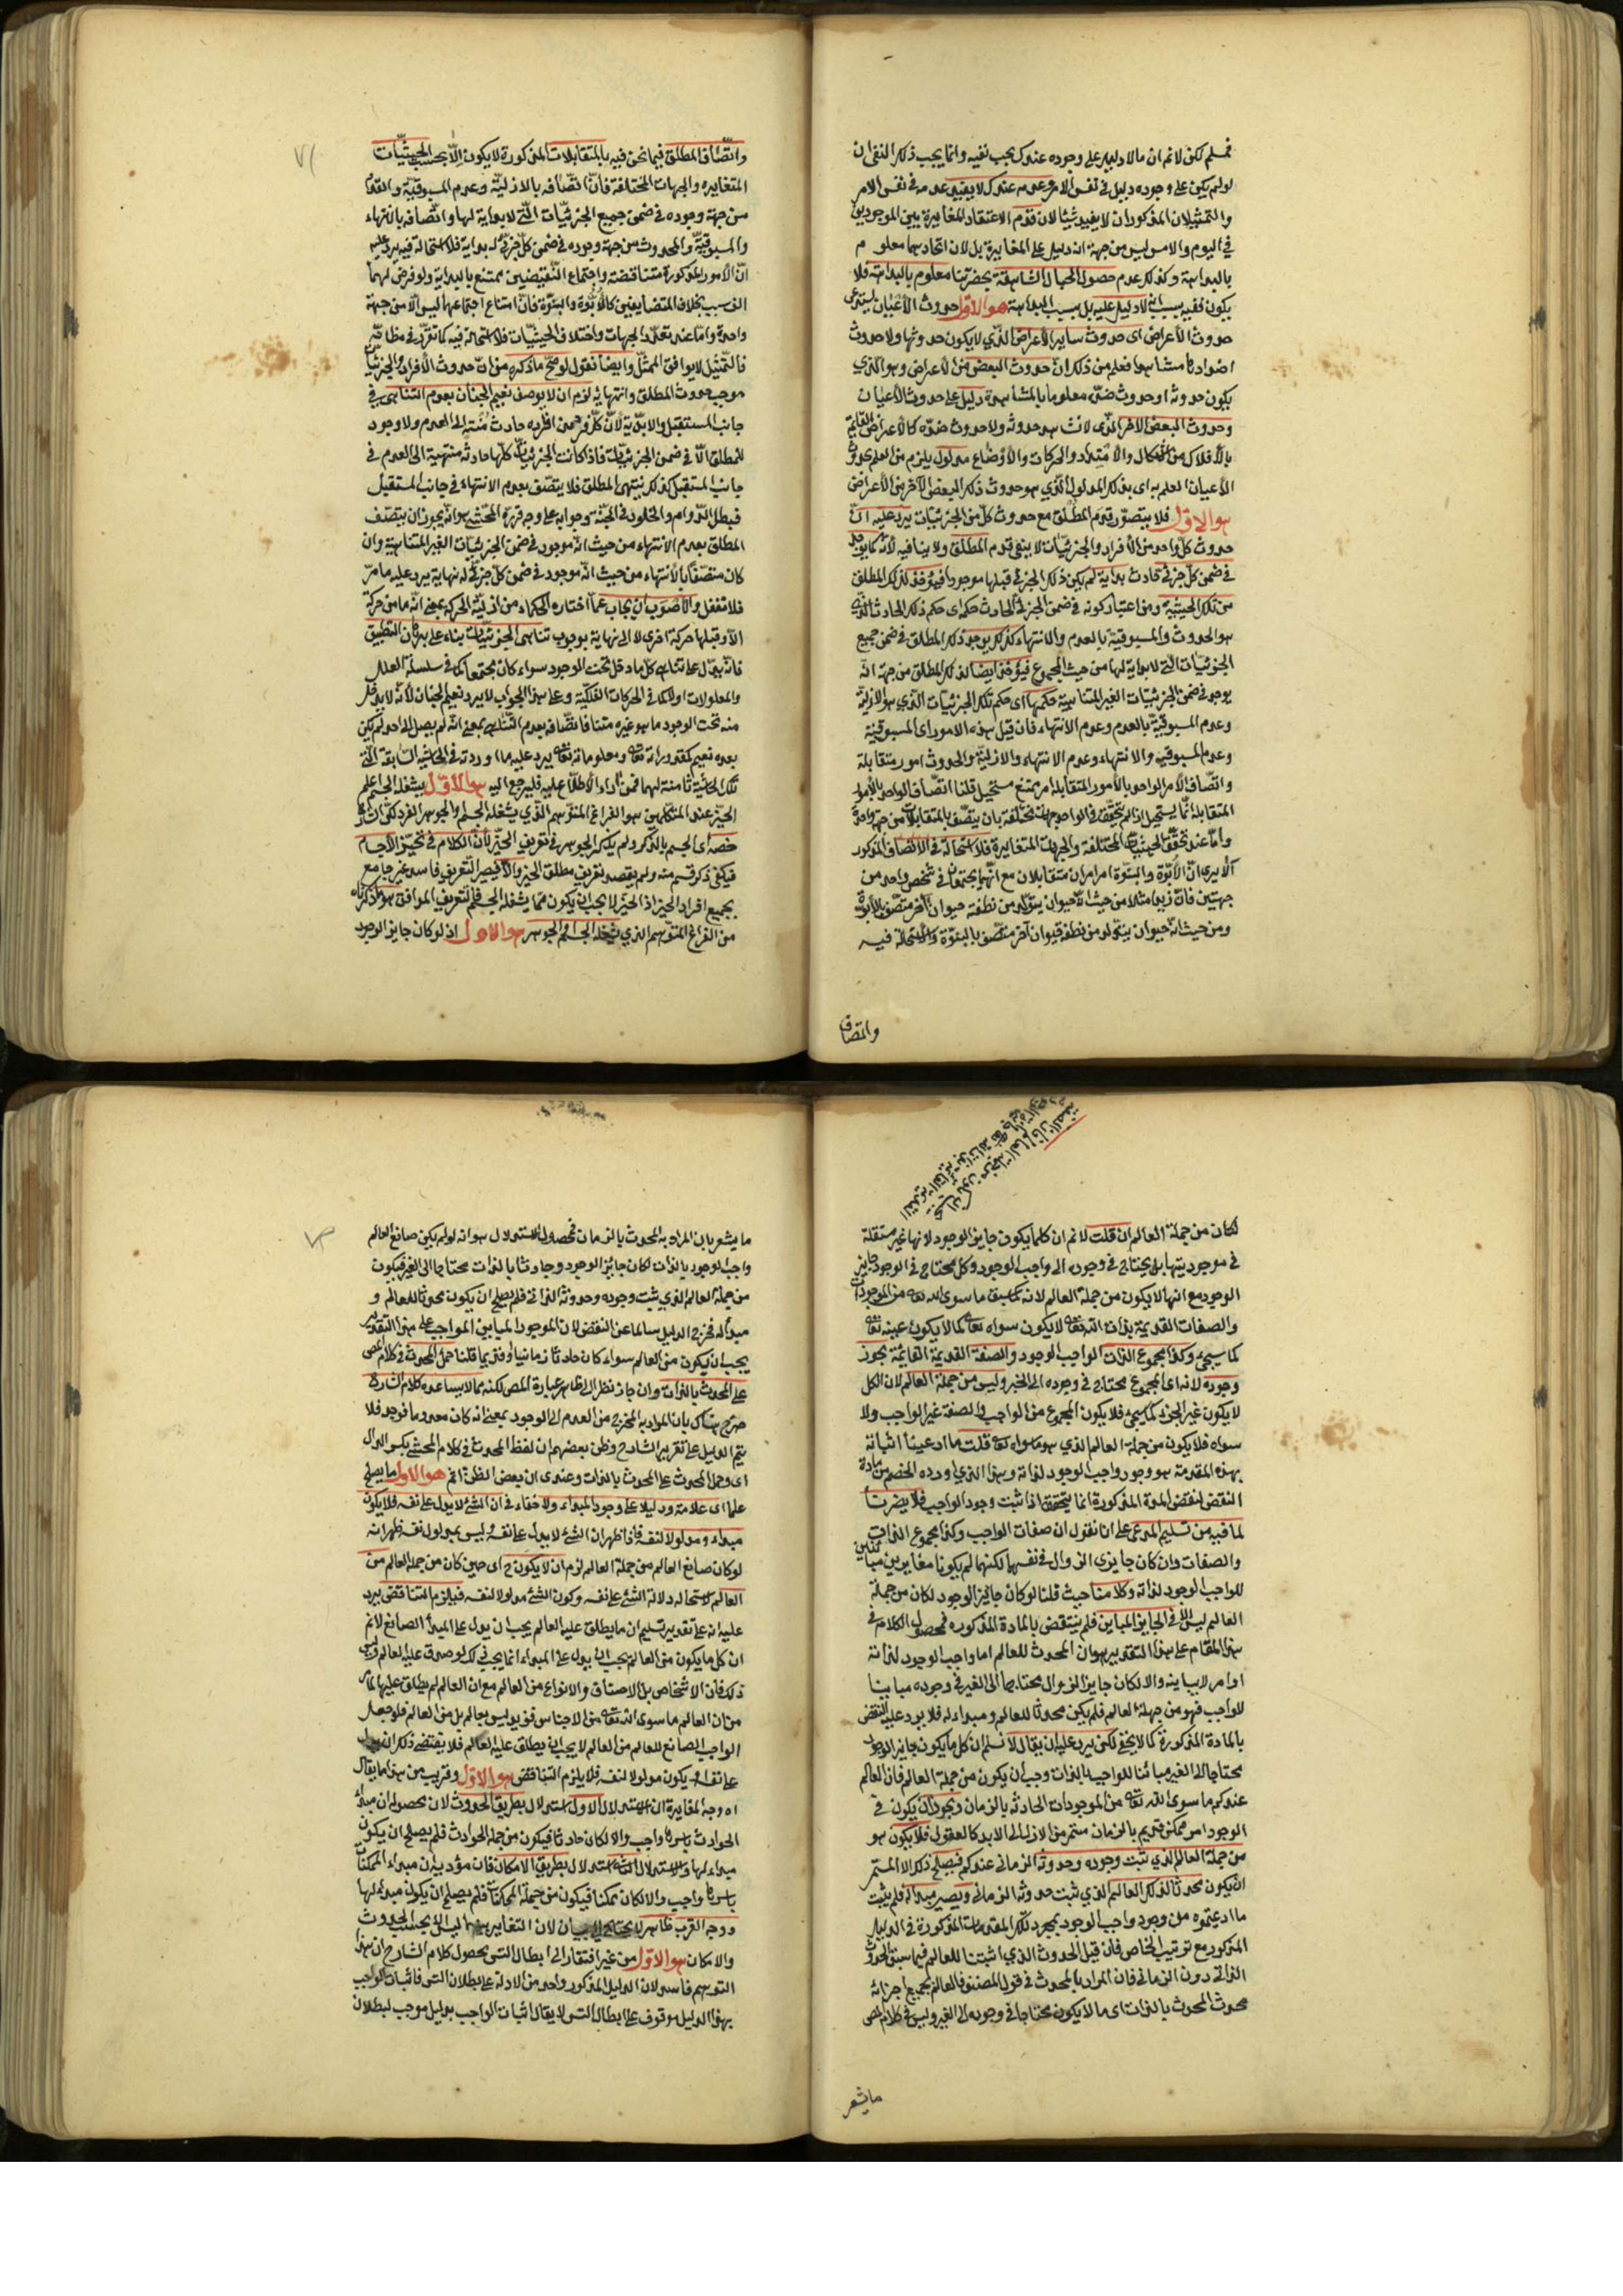 فمسلم لكن لا نم ان ما لا دليل على وجوده عندك يجب نفيه وانما يجب ذلك النفى ان
لو لم يكن على وجوده دليل فى نفس الامر وعدمه عندك لا يفيد عدمه فى نفس الامر
والتمثيلان المذكوران لا يفيد شيئا لان قدم الاعتقاد المغايرة بين الموجودين
في اليوم والامس ليس من جهة انه دليل على المغايرة بل لان اتحادهما معلوم
بالبداهة وكذلك عدم حصول الجبال الشاهقة بحضرتنا معلوم بالبداهة فلا
يكون نفيه بسبب ان لا دليل عليه بل بسبب البداهة هو الاول حدوث الأعيان يستدعى
حدوث الأعراض اى حدوث سائر الأعراض الذي لا يكون حدوثها ولا حدوث
اضدادها مشاهدا فعلم من ذلك ان حدوث البعض من الأعراض وهو الذي
يكون حدوثه او حدوث ضده معلوما بالمشاهدة دليل على حدوث الأعيان
وحدوث البعض الاخر الذى لا نشاهد حدوثه ولا حدوث ضده كالأعراض القائمة
بالأفلاك من الاشكال والامتداد والحركات والأوضاع مدلول يلزم من العلم بحدوث
الأعيان العلم به اى بذلك المدلول الذي هو حدوث ذلك البعض الآخر من الأعراض
هو الاول فلا يتصور قدم المطلق مع حدوث كل من الجزئيات يرد عليه ان
حدوث كل واحد من الأفراد والجزئيات لا ينفى قدم المطلق ولا ينافيه لأنه كما يوجد
في ضمن كل جزئي حادث بداية لم يكن ذلك الجزئي قبلها موجودا فيؤخذ لذلك المطلق
من تلك الحيثية ومن اعتبار كونه في ضمن الجزئي الحادث حكمه اى حكم ذلك الحادث الذى
هو الحدوث والمسبوقية بالعدم والانتهاء كذلك يوجد ذلك المطلق في ضمن جميع
الجزئيات التى لا بداية لها من حيث المجموع فيؤخذ ايضا لذلك المطلق من جهة انه
يوجد في ضمن الجزئيات الغير المتناهية حكمها اى حكم تلك الجزئيات الذي هو الازلية
وعدم المسبوقية بالعدم وعدم الانتهاء فان قيل هذه الامور اى المسبوقية
وعدم المسبوقية والانتهاء وعدم الانتهاء والازلية والحدوث امور متقابلة
واتصاف الأمر الواحد بالأمور المتقابلة امر ممتنع مستحيل قلنا اتصاف الواحد بالأمور
المتقابلة انما يستحيل اذا لم يتحقق في الواحد جهات مختلفة بان يتصف بالمتقابلات من جهة واحدة
واما عند تحقق الحيثيات المختلفة والجهات المتغايرة فلا استحالة في الاتصاف المذكور
ألا يرى ان الأبوة والبنوة امرامران متقابلان مع انهما يجتمعان في شخص واحد من
جهتين فان زيدا مثلا من حيث انه حيوان يتولد من نطفته حيوان آخر متصف بالأبوة
ومن حيث انه حيوان يتولد من نطفة حيوان آخر متصف بالبنوة ولا استحالة فيه
واتصاف
٧١
واتصاف المطلق فيما نحن فيه بالمتقابلات المذكورة لا يكون إلا بحسب الحيثيات
المتغايره والجهات المختلفة فان اتصافه بالازلية وعدم المسبوقية والقدم
من جهة وجوده في ضمن جميع الجزئيات التى لا بداية لها واتصافه بالانتهاء
والمسبوقية والحدوث من جهة وجوده في ضمن كل جزئي له بداية فلا استحالة فيه يرد عليه
ان الأمور المذكورة متناقضة واجتماع النقيضين ممتنع بالبداية ولو فرض لهما
الف سبب بخلاف المتضايفين كالأبوة والبنوة فان امتناع اجتماعهما ليس الا من جهة
واحدة واما عند تعدد الجهات واختلاف الحيثيات فلا استحالة فيه كما تقرر في مظانه
فالتمثيل لا يوافق الممثل وايضا نقول لو صح ما ذكره من ان حدوث الأفراد والجزئيات
موجب حدوث المطلق وانتهائه لزم ان لا يوصف نعيم الجنان بعدم التناهى في
جانب المستقبل والابدية لان كل فرد من افراده حادث منته الى العدم ولا وجود
للمطلق الا في ضمن الجزئيات فاذا كانت الجزئيات كلها حادثة منتهية الى العدم في
جانب المستقبل كذلك ينتهى المطلق فلا يتصف بعدم الانتهاء في جانب المستقبل
فبطل الدوام والخلود في الجنة وجوابه على وجه قرره المحشى هو انه يجوز ان يتصف
المطلق بعدم الانتهاء من حيث انه موجود في ضمن الجزئيات الغير المتناهية وان
كان متصفا بالانتهاء من حيث انه موجود في ضمن كل جزئي له نهاية يرد عليه ما مر
فلا تغفل والأصوب ان يجاب عما اختاره الحكماء من ازلية الحركة بمعنى انه ما من حركة
الا وقبلها حركة اخرى لا الى نهاية بوجوب تناهى الجزئيات بناء على برهان التطبيق
فانه يدل على تناهى كل ما دخل تحت الوجود سواء كان مجتمعا كما في سلسلة العلل
والمعلولات او لا كما في الحركات الفلكية وعلى هذا الجواب لا يرد نعيم الجنان لأنه لا يدخل
منه تحت الوجود ما هو غيره متناه فاتصافه بعدم التناهى بمعنى انه لم يصل الى حد لم يكن
بعده نعيم كمقدوراته تعالى ومعلوماته تعالى يرد عليه ما اوردته في الحاشية السابقة التى
تلك الحاشية ثامنة لها فمن أراد الاطلاع عليه فليرجع اليه هو الاول يشغله الجسم اعلم
الحيز عند المتكلمين هو الفراغ المتوهم الذي يشغله الجسم والجوهر الفرد لكن الشارح
خصه اى الجسم بالذكر ولم يذكر الجوهر في تعريف الحيز لأن الكلام في تحيز الأجسام
فيكفى ذكر قسم منه ولم يقصد تعريف مطلق الحيز والا فيصير التعريف فاسد غير جامع
بجميع افراد الحيز اذ الحيز لا يجب ان يكون مما يشغله الجسم فالتعريف الموافق هو ما ذكرناه
من الفراغ المتوهم الذي يشغله الجسم والجوهر هو الاول اذ لو كان جايز الوجود
لكان من جملة العالم ان قلت لا نم ان كلما يكون جايز الوجود لانها غير مستقلة
في موجوديتها بل يحتاج في وجوده الى واجب الوجود وكل محتاج في الوجود جايز
الوجود مع انها لا يكون من جملة العالم لانه كما سبق ما سوى الله تعالى من الموجودات
والصفات القديمة بذات الله تعالى لا يكون سواه تعالى كما لا يكون عينه تعالى
كما سيجئ وكذا مجموع الذات الواجب الوجود والصفة القديمة القائمة يجوز
وجوده لانه اى المجموع محتاج في وجوده الى الجزء وليس من جملة العالم لان الكل
لا يكون غير الجزء كما سيجئ فلا يكون المجموع من الواجب والصفة غير الواجب ولا
سواه فلا يكون من جملة العالم الذي هو ما سواه تعالى قلت ما ادعينا اثباته
بهذه المقدمة هو وجود واجب الوجود لذاته وهذا الذي اورده الخصم من مادة
النقض لنقض المادة المذكورة انما يتحقق اذا ثبت وجود الواجب فلا يضرنا
لما فيه من تسليم المدعى على انا نقول ان صفات الواجب وكذا مجموع الذات
والصفات وان كان جايزى الزوال في نفسها لكنهما لم يكونا مغايرين مباينين
للواجب الوجود لذاته وكلامنا حيث قلنا لو كان جائز الوجود لكان من جملة
العالم ليس الا في الجايز المباين فلم ينتقض بالمادة المذكوره فمحصول الكلام في
هذا المقام على هذا التقدير هو ان المحدث للعالم اما واجب الوجود لذاته
او امر لا يباينه والا لكان جايز الزوال محتاجا الى الغير في وجوده مباينا
للواجب فهو من جملة العالم فلم يكن محدثا للعالم ومبداء له فلا يرد عليه النقض
بالمادة المذكورة كما لا يخفى لكن يرد عليه ان يقال لا نسلم ان كل ما يكون جايز الوجود
محتاجا الى الغير مبائنا للواجب بالذات وجب ان يكون من جملة العالم فان العالم
عندكم ما سوى الله تعالى من الموجودات الحادثة بالزمان ويجوز ان يكون في
الوجود امر ممكن قديم بالزمان مستمر من الازل الى الابد كالعقول فلا يكون هو
من جملة العالم الذي ثبت وجوده وحدوثه الزمانى عندكم فيصلح ذلك الامر المستمر
ان يكون محدثا لذلك العالم الذي ثبت حدوثه الزمانى ويصير مبدأ له فلم يثبت
ما ادعيتموه من وجود واجب الوجود بمجرد تلك المقدمات المذكورة في الدليل
المذكور مع ترتيب الخاص فان قيل الحدوث الذي اثبتنا للعالم فيما سبق الحدوث
الذاتى دون الزمانى فان المراد بالمحدث في قول المصنف فالعالم بجميع اجزائه
محدث المحدث بالذات اى ما لا يكون محتاجا في وجوده الى الغير وليس في كلام المص
ما يشعر
ما يشعر بان المراد به المحدث بالزمان فمحصول الاستدلال هو انه لو لم يكن صانع العالم
واجب الوجود بالذات لكان جائز الوجود وحادثا بالذات محتاجا الى الغير فيكون
من جملة العالم الذي يثبت وجوده وحدوثه الذاتى فلم يصلح ان يكون محدثا للعالم و
مبدأ له فخرج الدليل سالما عن النقض لان الموجود المباين الواجب على هذا التقدير
يجب ان يكون من العالم سواء كان حادثا زمانيا او قديما قلنا حمل المحدث في كلام المص
على المحدث بالذات وان جاز نظرا الى ظاهر عبارة المص لكنه مما لا يساعده كلام الشارح
صرح هناك بان المراد به المخرج من العدم الى الوجود بمعنى انه كان معدوما فوجد فلا
يتم الدليل على تقرير الشارح وظن بعضهم ان لفظ المحدث في كلام المحشى بكسر الدال
اى وحمل المحدث على المحدث بالذات وعندى ان بعض الظن اثم هو الاول ما يصلح
علما اى علامة ودليلا على وجود المبداء ولا خفاء في ان الشئ لا يدل على نفسه فلا يكون
مبداء ومدلولا لنفسه فاذا ظهر ان الشئ لا يدل على نفسه وليس بمدلول نفسه ظهر انه
لو كان صانع العالم من جملة العالم لزم ان لا يكون ح اى حين كان من جملة العالم من
العالم لاستحاله دلالة الشئ على نفسه وكون الشئ مدلولا لنفسه فيلزم التناقض يرد
عليه انه على تقدير تسليم ان ما يطلق عليه العالم يجب ان يدل على المبدأ الصانع لا نم
ان كل ما يكون من العالم يجب ان يدل على المبداء انما يجب ذلك لو صدق عليه العالم وليس
ذلك فان الاشخاص بل الاصناف والانواع من العالم مع ان العالم لم يطلق عليها لما مر
من ان العالم ما سوى الله تعالى من الاجناس فزيد ليس بعالم بل من العالم فلو جعل
الواجب الصانع للعالم من العالم لا يجب ان يطلق عليه العالم فلا يقتضى ذلك ان يدل
على نفسه او يكون مدلولا لنفسه فلا يلزم التناقض هو الاول وقريب من هذا ما يقال
اه وجه المغايرة ان الاستدلال الاول استدلال بطريق الحدوث لان محصوله ان مبدأ
الحوادث باسرها واجب والا لكان حادثا فيكون من جملة الحوادث فلم يصلح ان يكون
مبداء لها والاستدلال الثانى استدلال بطريق الامكان فان مؤديه ان مبداء الممكنات
باسرها واجب والا لكان ممكنا فيكون من جملة الممكنات فلم يصلح ان يكون مبدأ لها
ووجه القرب ظاهر لا يحتاج الى البيان لان التغاير بينهما ليس الا بحسب الحدوث
والامكان هو الاول من غير افتقار الى ابطال التس محصول كلام الشارح ان هذا
التوهم فاسد لان الدليل المذكور واحد من الادلة على بطلان التس فاثبات الواجب
بهذا الدليل موقوف على ابطال التس لا يقال اثبات الواجب بدليل موجب لبطلان